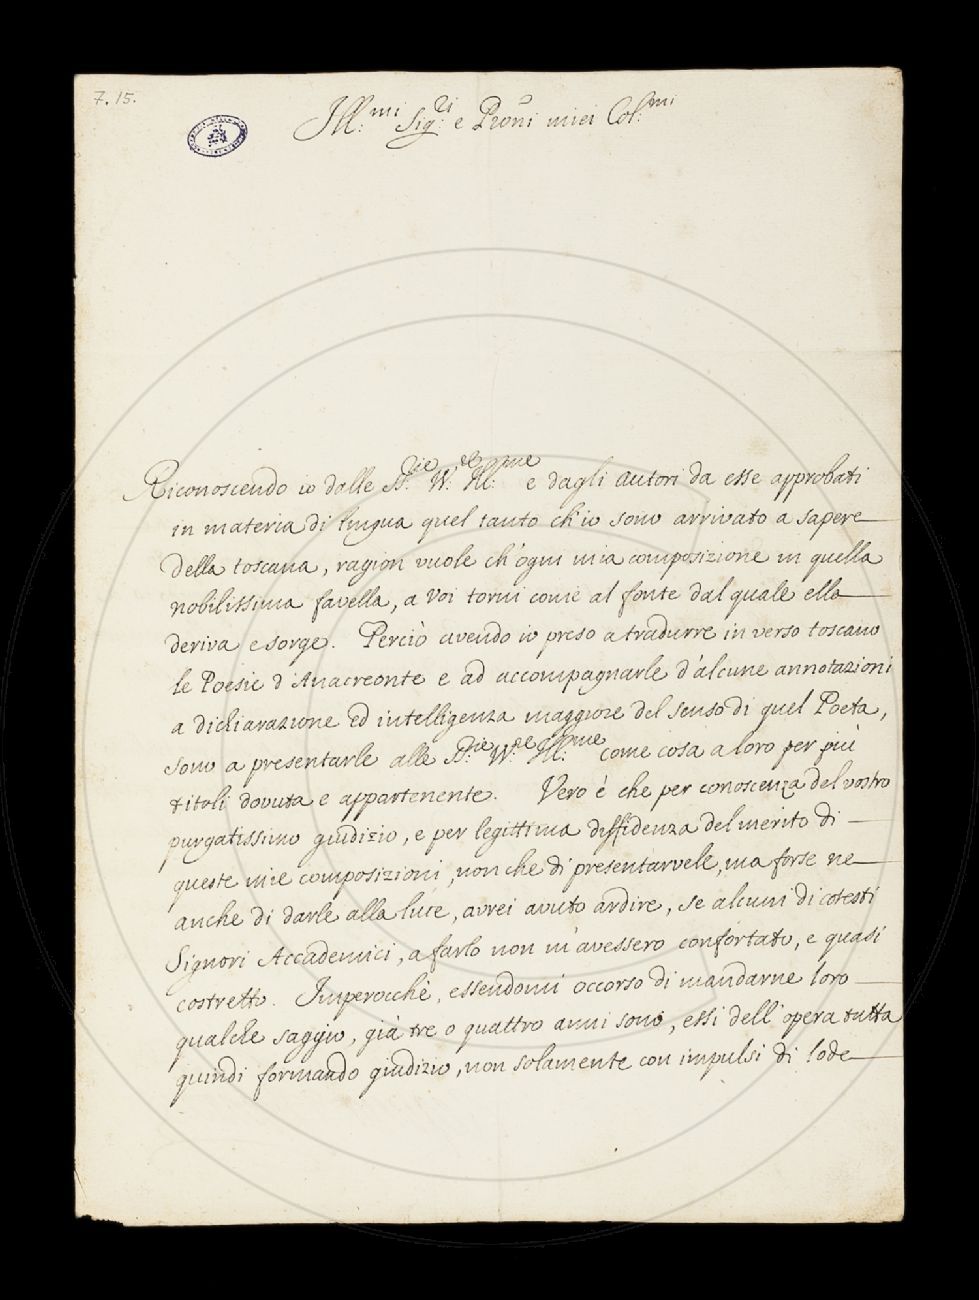 7.15.
Ill:mi Sig:ri e Proñi miei Col:mi
Riconoscendo io dalle S.rie VV.re Ill:me e dagli autori da esse approbati
in materia di lingua quel tanto ch'io sono arrivato a sapere
della toscana, ragion vuole ch'ogni mia composizione in quella
nobilissima favella, a voi torni come al fonte dal quale ella
deriva e sorge. Perciò avendo io preso a tradurre in verso toscano
le Poesie d'Anacreonte e ad accompagnarle d'alcune annotazioni
a dichiarazione ed intelligenza maggiore del senso di quel Poeta,
sono a presentarle alle S.rie VV.re Ill:me come cosa a loro per più
titoli dovuta e appartenente. Vero è che per conoscenza del vostro
purgatissimo giudizio, e per legittima diffidenza del merito di
queste mie composizioni, non che di presentarvele, ma forse ne
anche di darle alla luce, avrei avuto ardire, se alcuni di cotesti
Signori Accademici, a farlo non m'avessero confortato, e quasi
costretto. Imperocchè, essendomi occorso di mandarne loro
qualche saggio, già tre o quattro anni sono, essi dell'opera tutta
quindi formando giudizio, non solamente con impulsi di lode